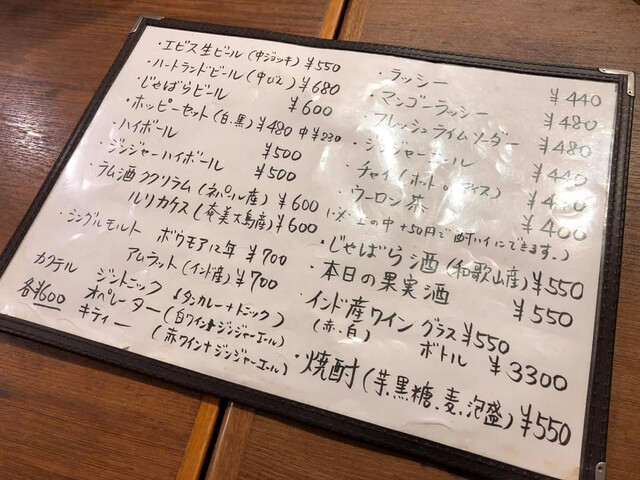 ・エビス生ビール(中ジョッキ) ¥550
・ハートランドビール(中びん) ¥680
・じゃばらビール ¥600
・ホッピーセット(白、黒) ¥480 中¥230
・ハイボール ¥500
・ジンジャーハイボール ¥500
・ラム酒 ククリラム(ネパール産) ¥600
ルリカケス(奄美大島産) ¥600
・シングルモルト ボウモア12年 ¥700
アムラット(インド産) ¥700
カクテル ジントニック (タンカレー+トニック)
各¥600 オペレーター (白ワイン+ジンジャーエール)
キティー (赤ワイン+ジンジャーエール)
・ラッシー ¥440
・マンゴーラッシー ¥480
・フレッシュライムソーダー ¥480
・ジンジャーエール ¥440
・チャイ(ホット or アイス)
・ウーロン茶 ¥400
(・以上の中+50円で酎ハイにできます。)
・じゃばら酒(和歌山産) ¥550
・本日の果実酒 ¥550
・インド産ワイン グラス ¥550
(赤・白) ボトル ¥3300
・焼酎(芋、黒糖、麦、泡盛) ¥550